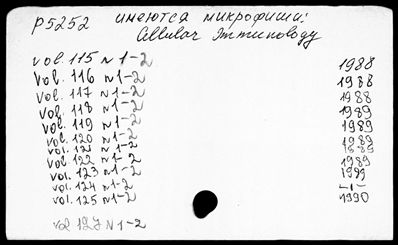 P5252 имеются микрофиши:
Cellular Immunology
vol. 115 N 1-2 1988
vol. 116 N 1-2 1988
vol. 117 N 1-2 1988
vol. 118 N 1-2 1989
vol. 119 N 1-2 1989
vol. 120 N 1-2 1989
vol. 121 N 1-2 1989
vol. 122 N 1-2 1989
vol. 123 N 1-2 1989
vol. 124 N 1-2 -1-
vol. 125 N 1-2 1990
vol 127 N 1-2